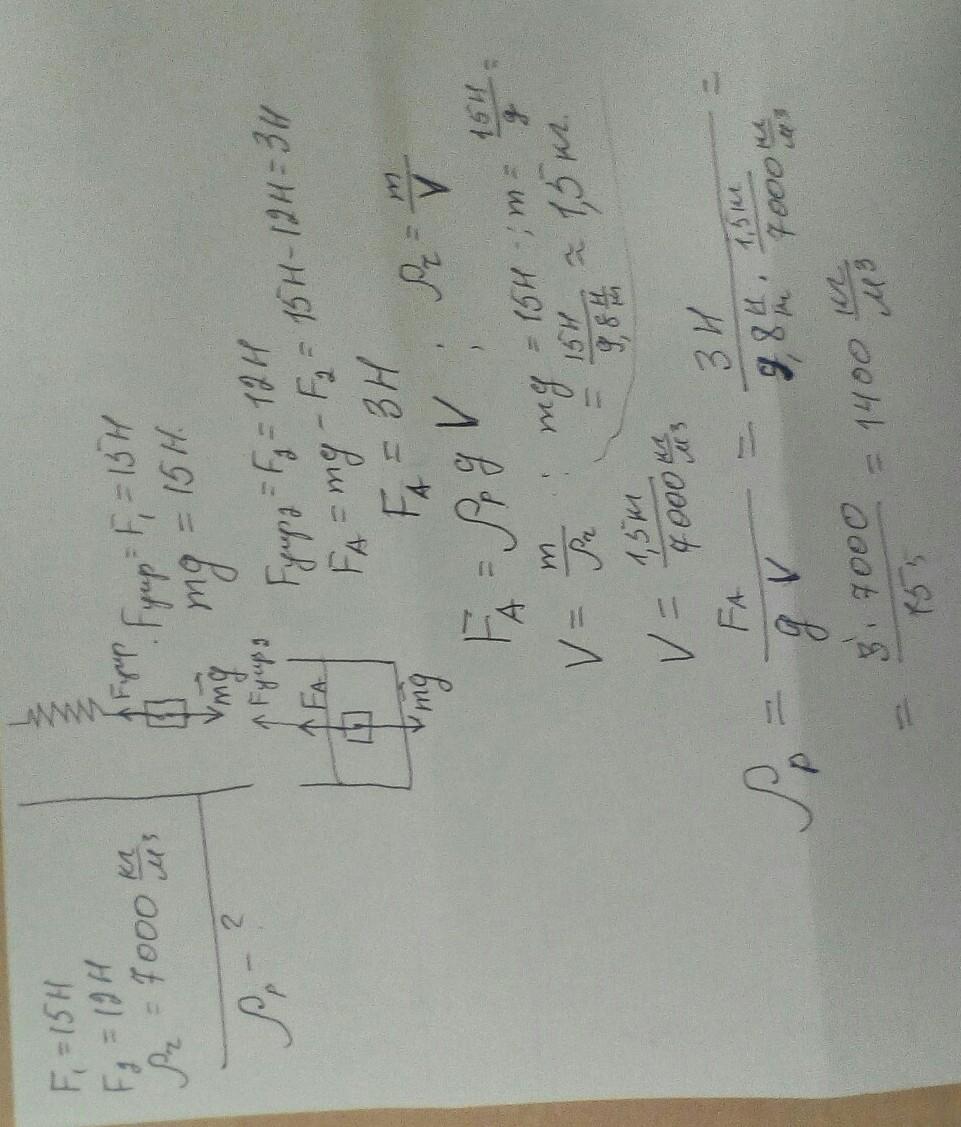 F₁ = 15Н
F₂ = 12Н
ρ₂ = 7000 кг/м³
ρₚ - ?
Fупр
mg
Fупр = F₁ = 15Н
mg = 15Н
Fупр2
FА
mg
Fупр2 = F₂ = 12Н
FА = mg - F₂ = 15Н - 12Н = 3Н
FА = 3Н
FА = ρₚ g V ; ρ₂ = m/V
V = m/ρ₂ ; mg = 15Н ; m = 15Н/g =
= 15Н/9,8 Н/кг ≈ 1,5 кг
V = 1,5кг/7000 кг/м³
ρₚ = FА/g V = 3Н/9,8 Н/кг · 1,5кг/7000 кг/м³ =
= 3·7000/15 = 1400 кг/м³